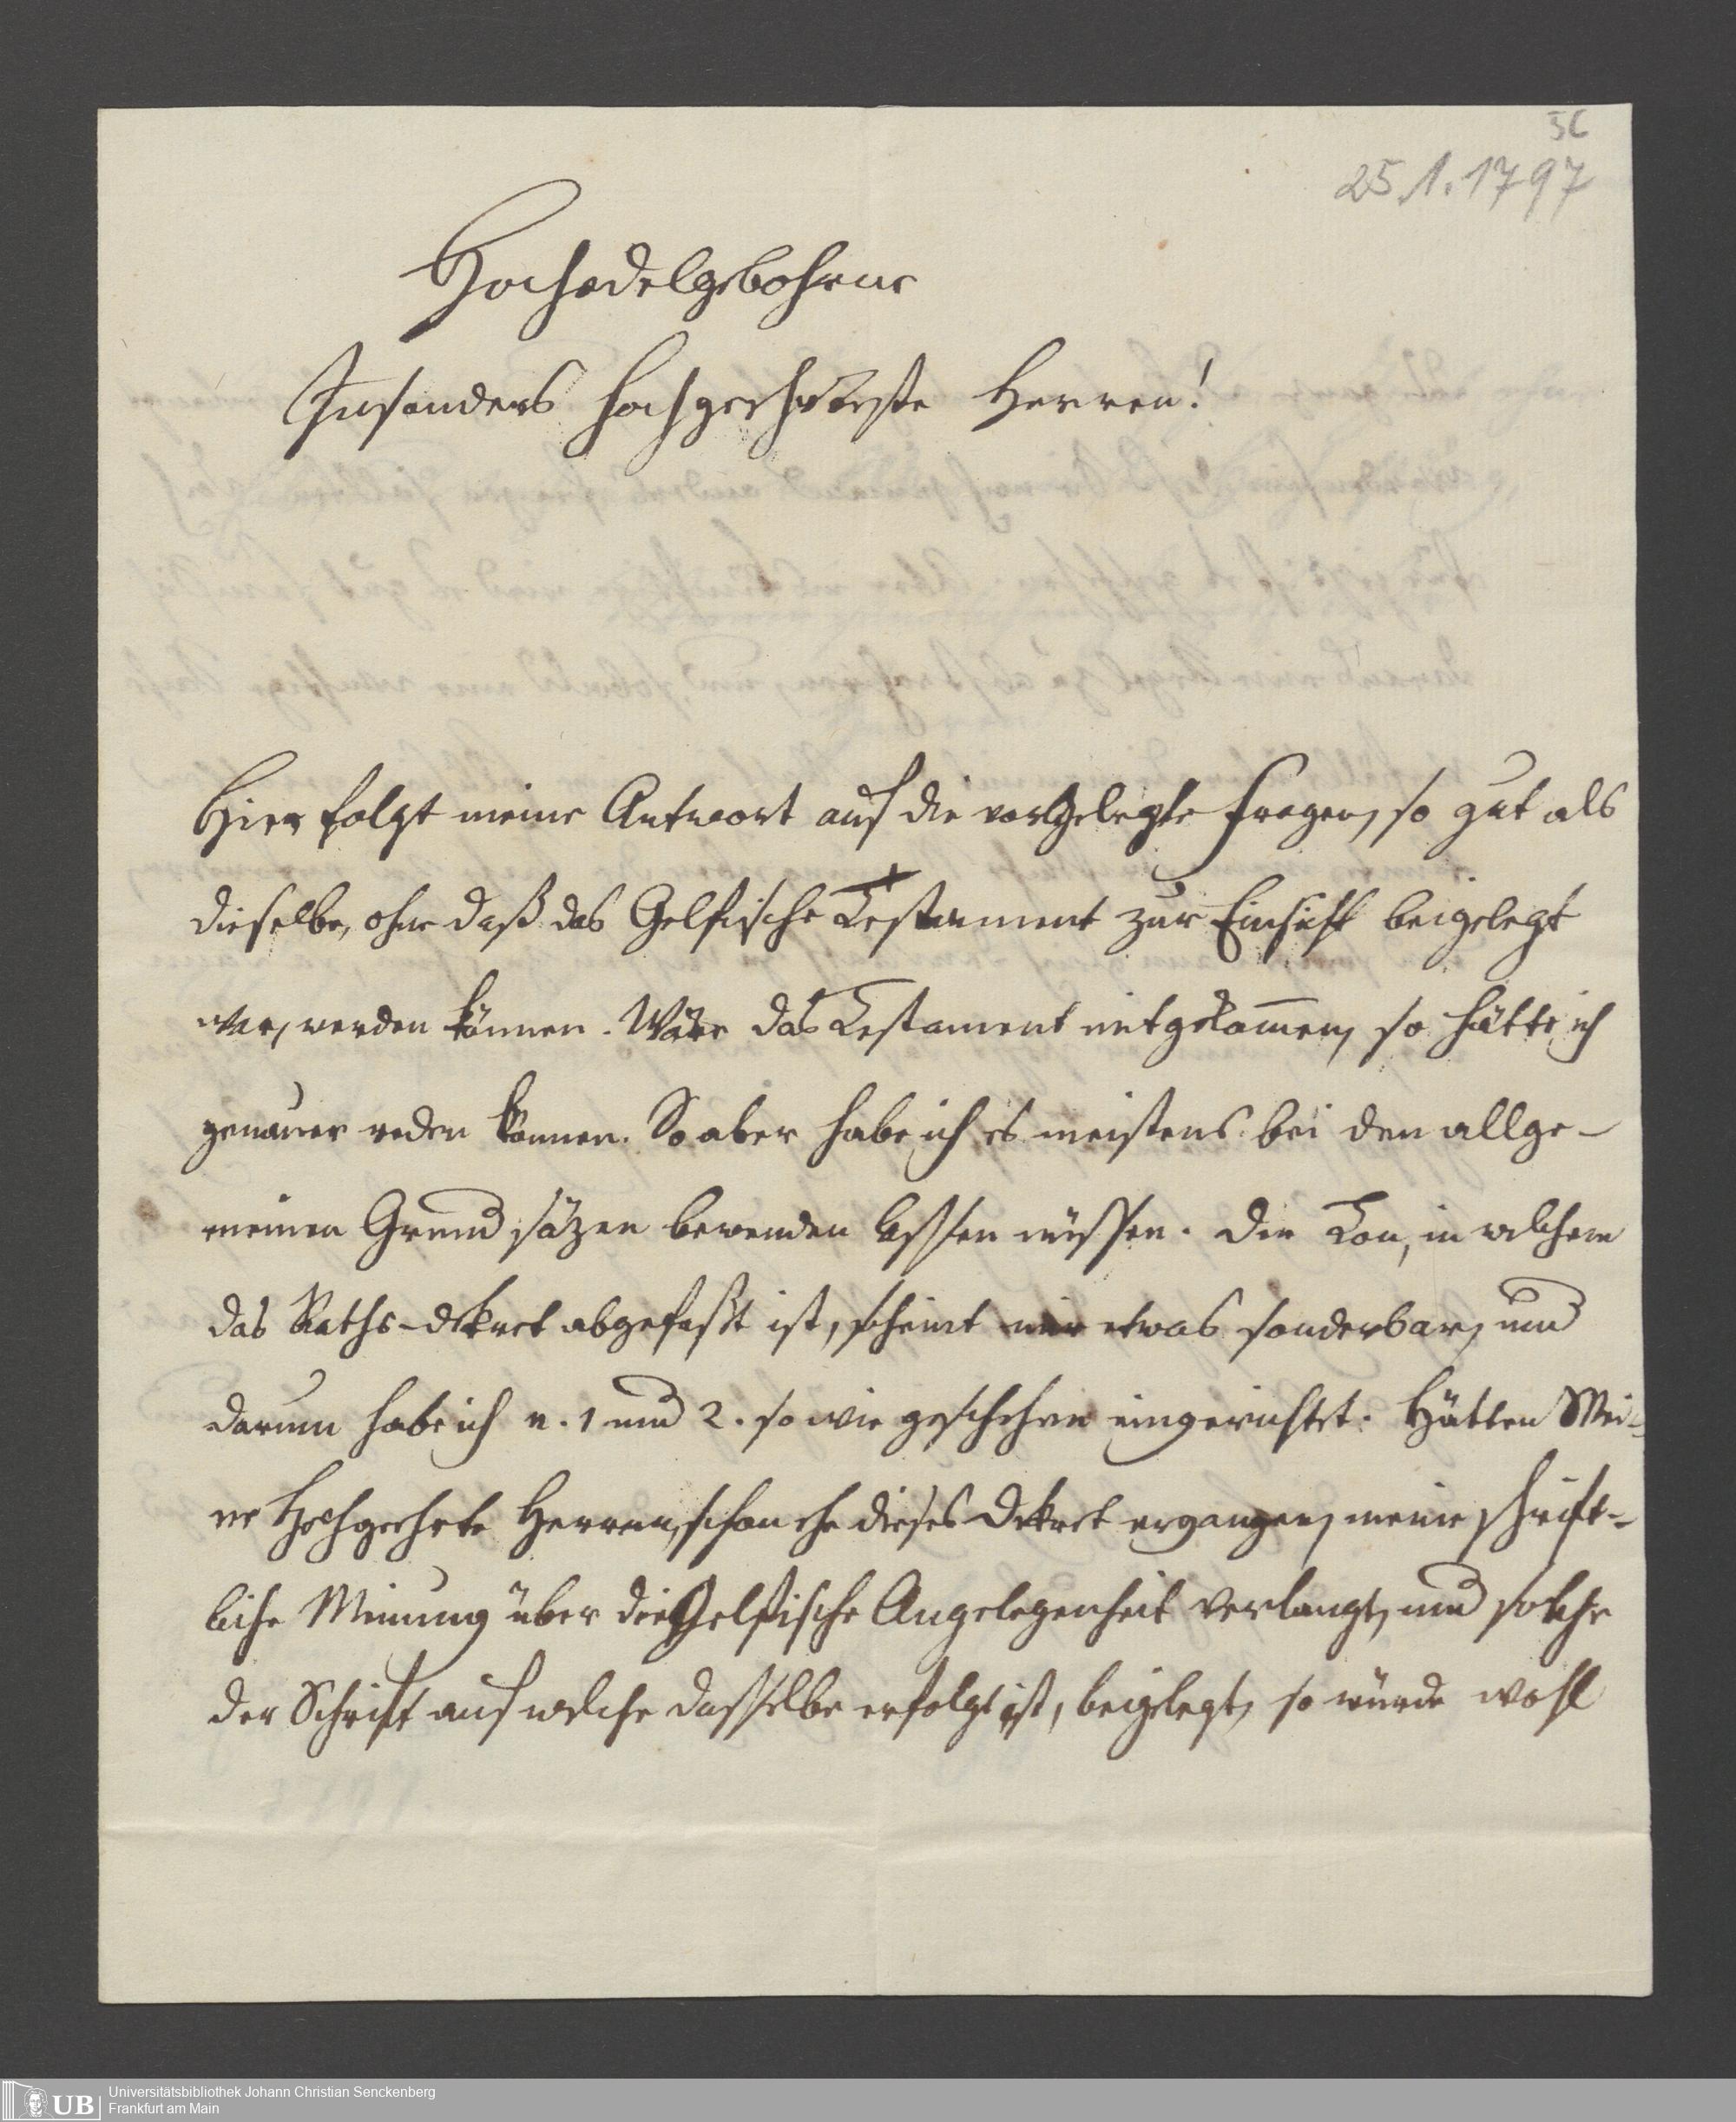 56
25.1.1797
Hochedelgebohrne
Insonders hochgeehrteste Herren!
Hier folgt meine Antwort auf die vorgelegte Fragen, so gut als
dieselbe, ohne daß das Gelfische Testament zur Einsicht beigelegt
war, werden können. Wäre das Testament mitgekom̅en, so hätte ich
genauer reden können. So aber habe ich es meistens bei den allge-
meinen Grundsäzen bewenden lassen müssen. Der Ton, in welchem
das Raths-dekret abgefaßt ist, scheint mir etwas sonderbar, und
darum habe ich n. 1 und 2. so wie geschehen eingerichtet. Hätten Mei-
ne Hochgeehrte Herren, schon ehe dieses Dekret ergangen, meine schrift-
liche Meinung über die Gelfische Angelegenheit verlangt, und solche
der Schrift auf welche dasselbe erfolgt ist, beigelegt, so würde wohl
UB
Universitätsbibliothek Johann Christian Senckenberg
Frankfurt am Main